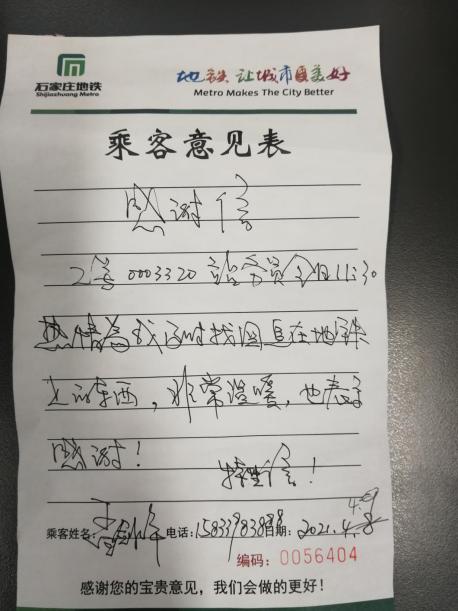 石家庄地铁
Shijiazhuang Metro
地铁 让城市更美好
Metro Makes The City Better
乘客意见表
感谢信
工号0003320站务员今日11:30
热情为我及时找回是在地铁
上的东西，非常温暖，也表示
感谢！ 特此信！
乘客姓名: 电话: 15833983888 日期: 2021.4.
编码: 0056404
感谢您的宝贵意见，我们会做的更好！